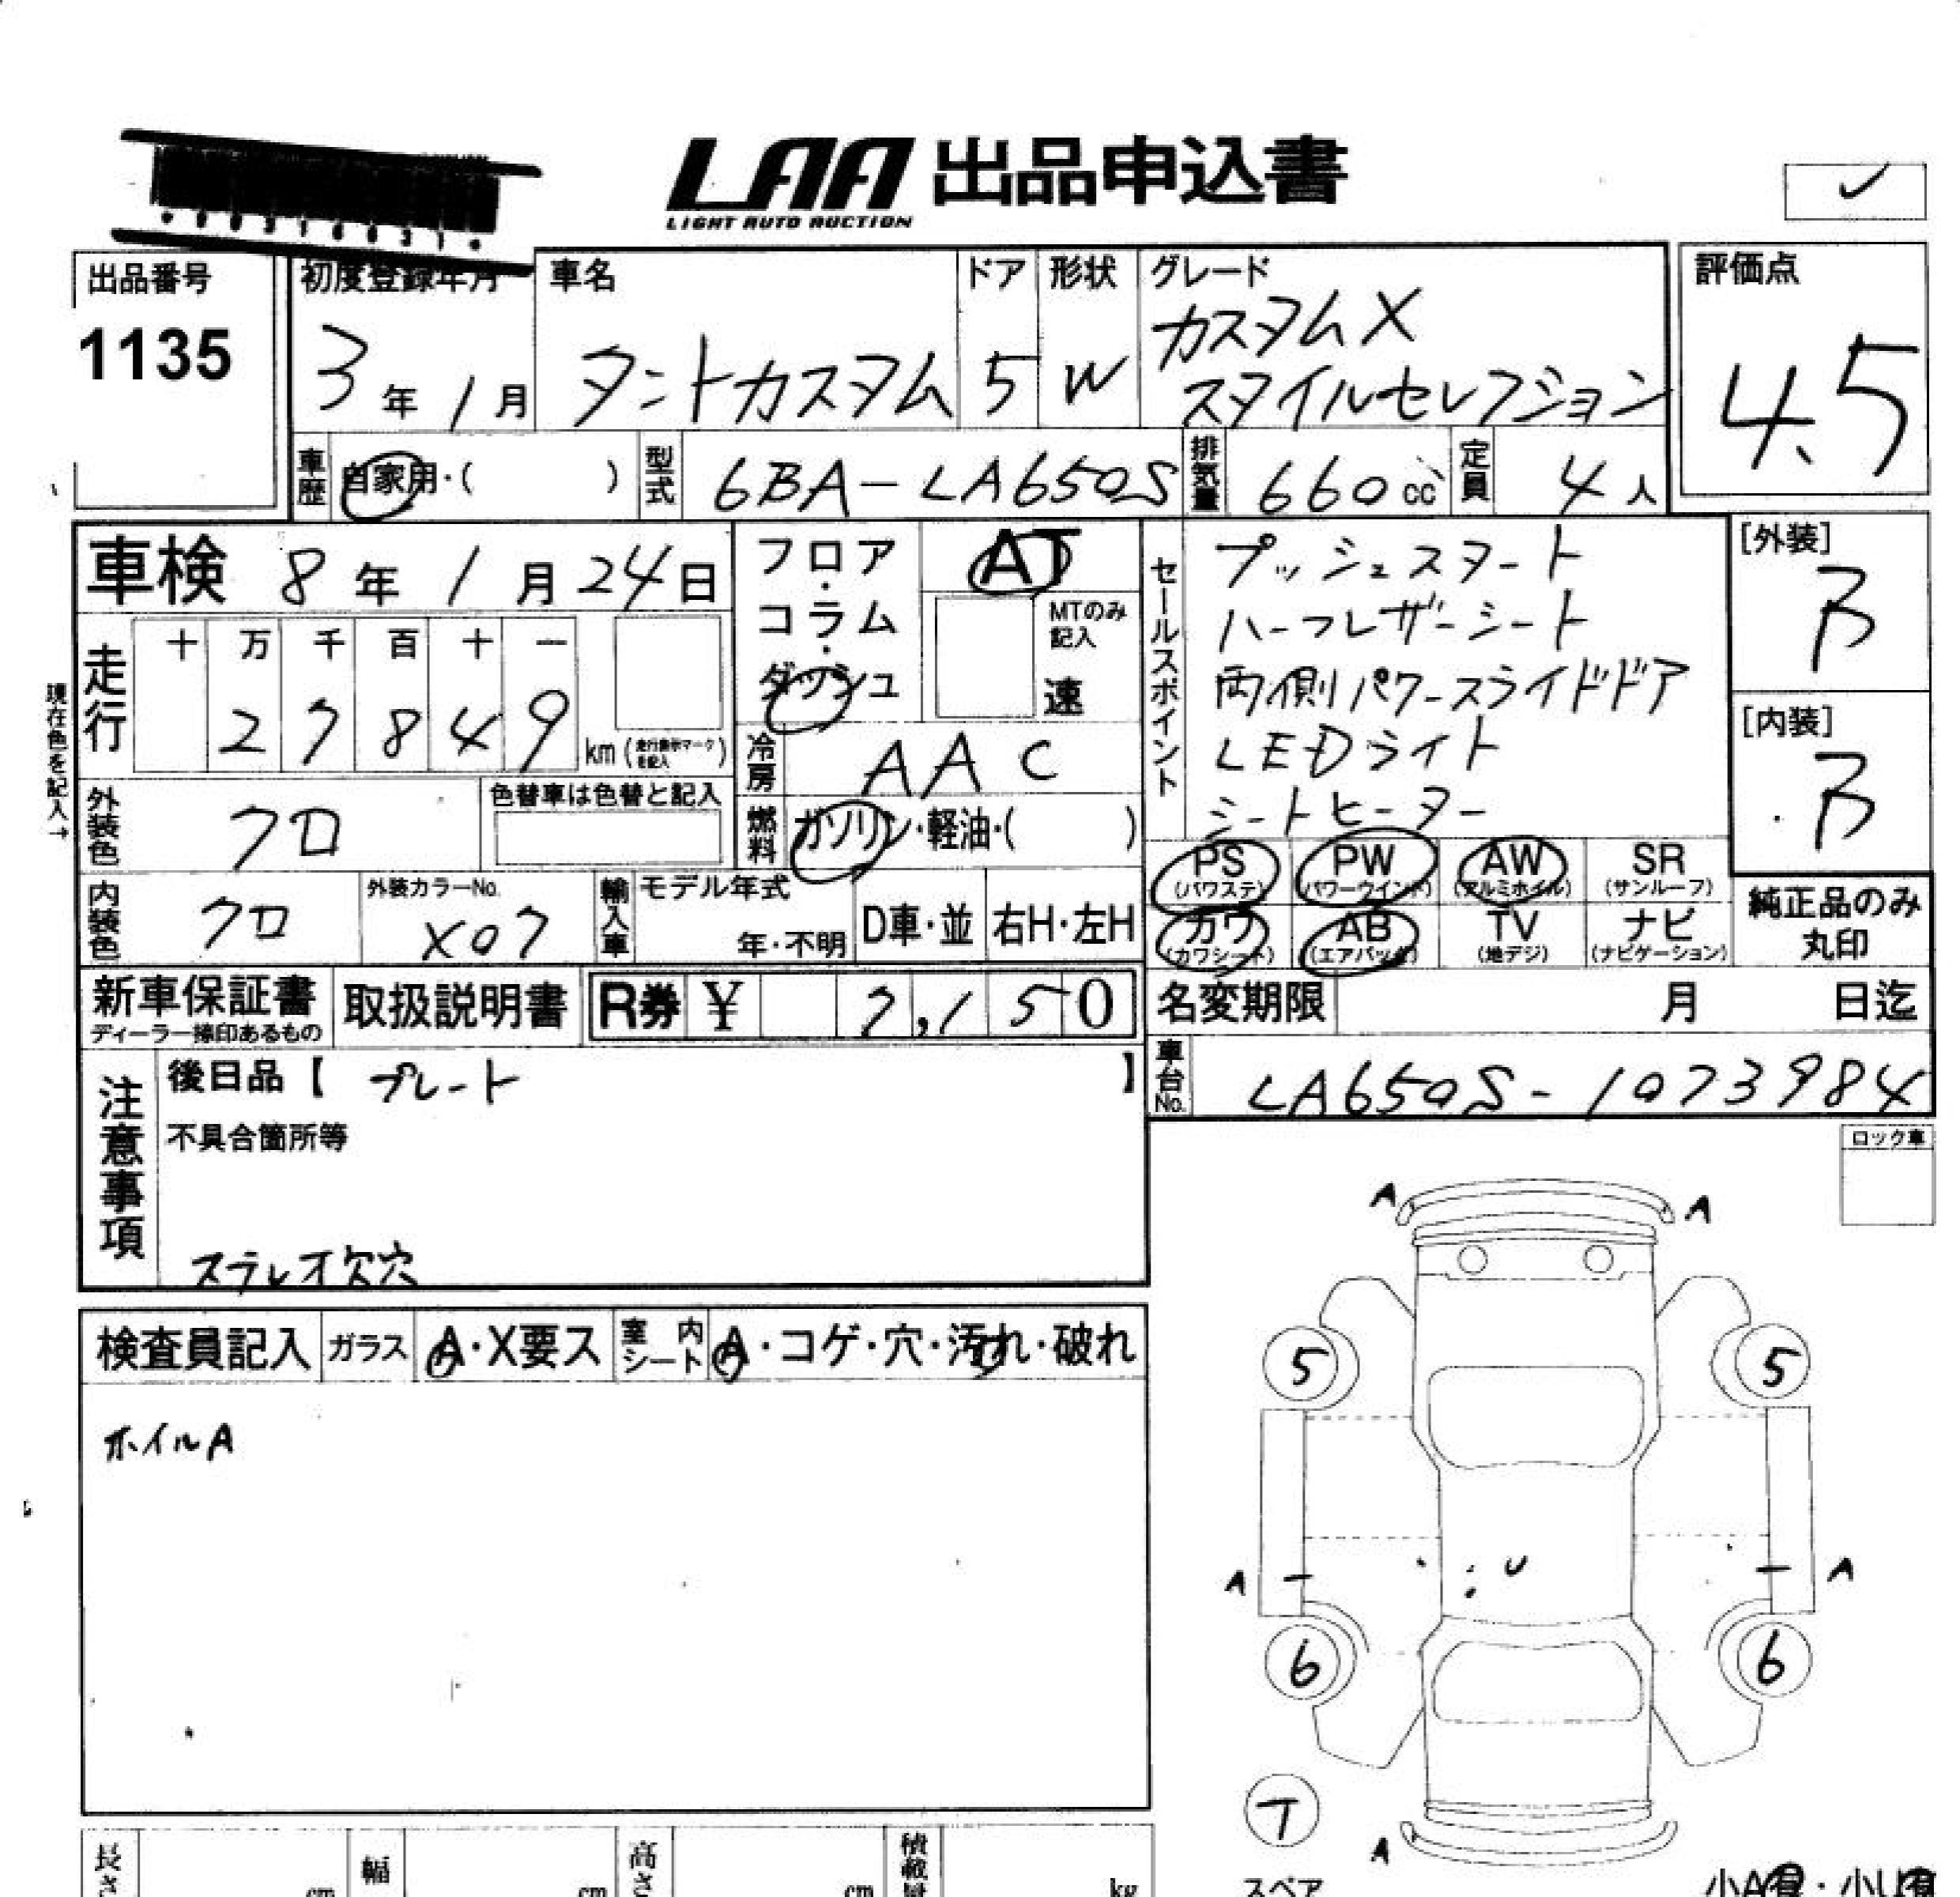 LAA 出品申込書
LIGHT AUTO AUCTION
出品番号
1135
初度登録年月
3年1月
車名
タントカスタム
ドア
5
形状
W
グレード
カスタムX
スタイルセレクション
評価点
4.5
車歴
自家用・( )
型式
6BA-LA650S
排気量
660cc
定員
4人
車検 8年1月24日
走行
十 万 千 百 十 一
2 7 8 4 9
km(走行表示マークを記入)
フロア・コラム・ダッシュ
AT
MTのみ記入
速
冷房
AAC
燃料
ガソリン・軽油・( )
セールスポイント
プッシュスタート
ハーフレザーシート
両側パワースライドドア
LEDライト
シートヒーター
[外装]
B
[内装]
B
現在色を記入→
外装色
クロ
色替車は色替と記入
内装色
クロ
外装カラーNo.
X07
輸入車
モデル年式
年・不明
D車・並
右H・左H
PS (パワステ)
PW (パワーウインド)
AW (アルミホイル)
SR (サンルーフ)
カワ (カワシート)
AB (エアバック)
TV (地デジ)
ナビ (ナビゲーション)
純正品のみ
丸印
新車保証書
ディーラー捺印あるもの
取扱説明書
R券 ¥ 7,150
名変期限 月 日迄
車台No.
LA650S-1073984
注意事項
後日品【 プレート 】
不具合箇所等
ステレオ欠穴
ロック車
検査員記入
ガラス
A・X要ス
室内シート
A・コゲ・穴・汚れ・破れ
ホイルA
A
A
5
5
A
U
A
6
6
T
スペア
A
長さ
cm
幅
cm
高さ
cm
積載量
kg
小A有・小U有